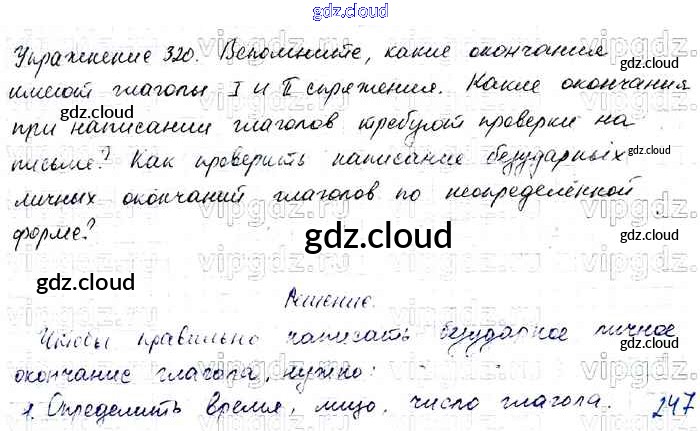 gdz.cloud
Упражнение 320. Вспомните, какие окончания
имеют глаголы I и II спряжения. Какие окончания
gdz.cloud
gdz.cloud
при написании глаголов требуют проверки на
письме? Как проверить написание безударных
gdz.cloud
личных окончаний глаголов по неопределённой
форме?
gdz.cloud
gdz.cloud
Решение.
Чтобы правильно написать безударное личное
gdz.cloud
окончание глагола, нужно:
1. Определить время, лицо, число глагола. 247